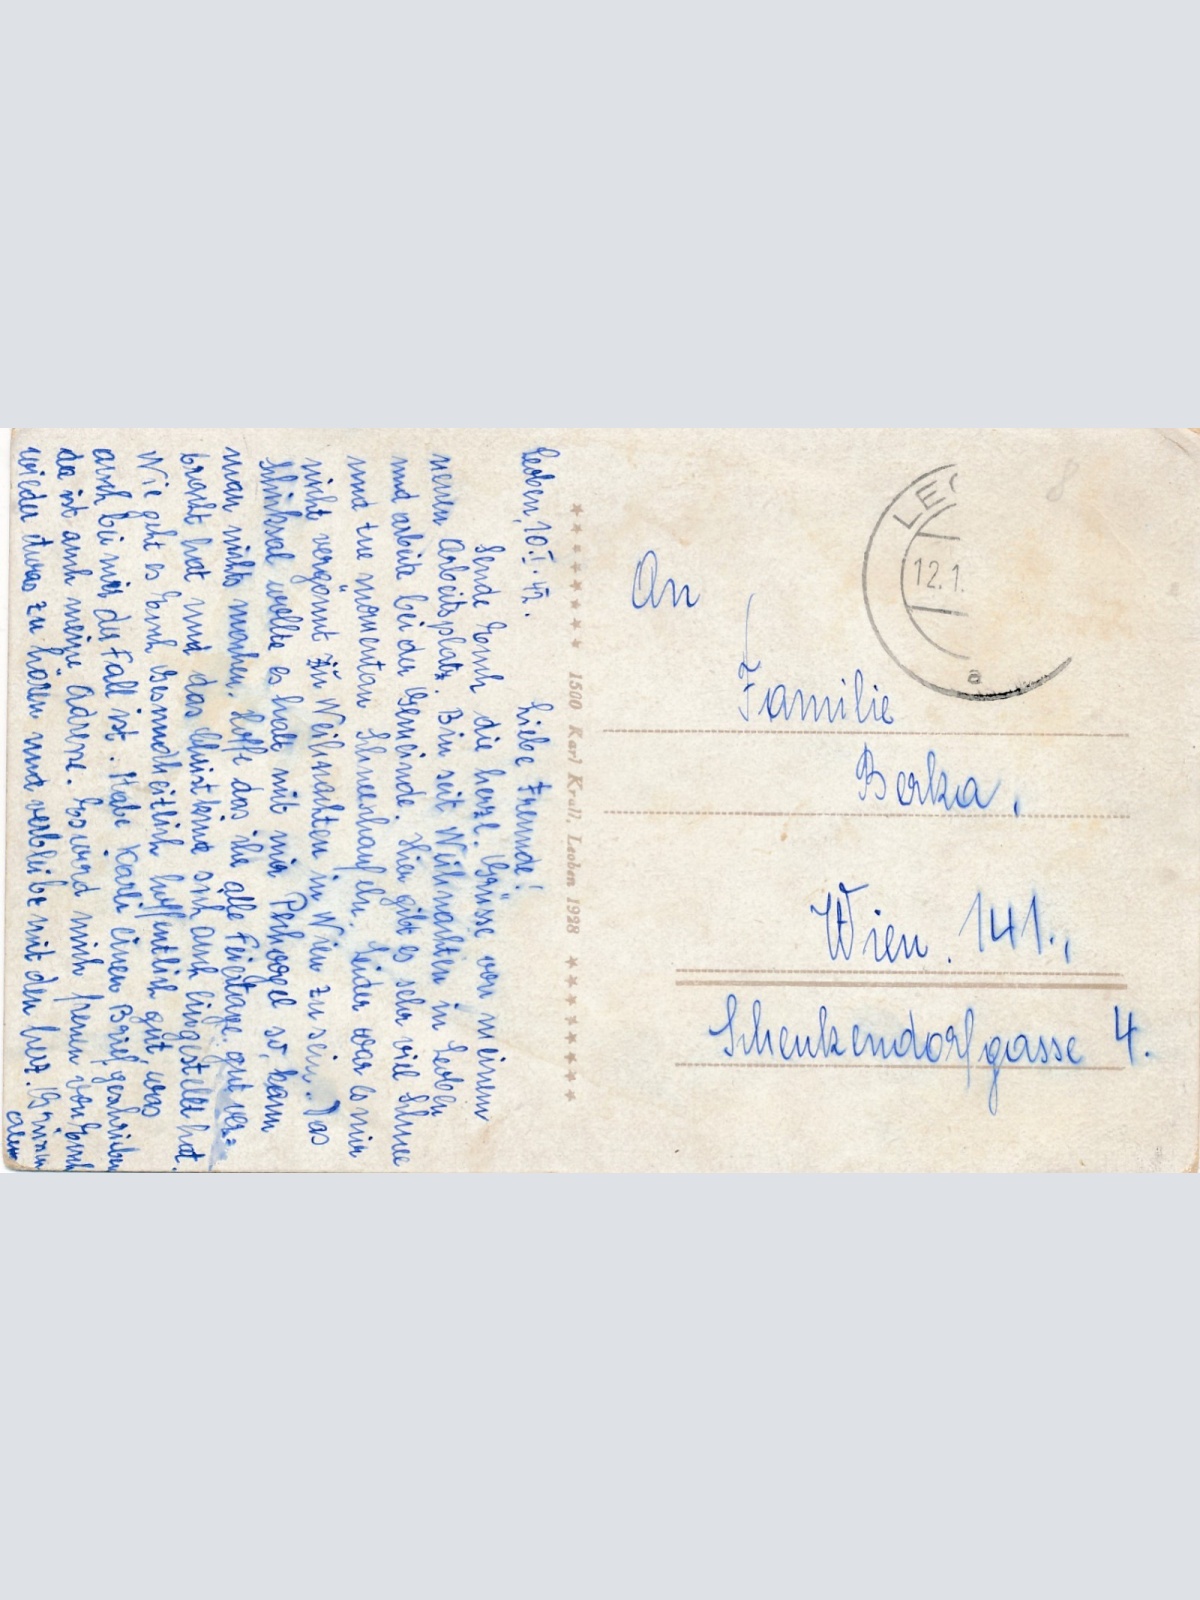 Leoben, 10.I.42.
Liebe Freunde!
Sende Euch die herzl. Grüsse von meinem
neuen Arbeitsplatz. Bin seit Weihnachten in Leoben
und arbeite bei der Gemeinde. Hier gibt es sehr viel Schnee
und tue momentan Schneehaufeln. Leider war es mir
nicht vergönnt zu Weihnachten in Wien zu sein. Das
Schiksal wollte es halt mit mir Pechvogel so, kann
man nichts machen. Hoffe das ihr alle Feiertage gut ver=
bracht hat und das Christkind sich auch eingestellt hat.
Wie geht es Euch Gesundheitlich hoffentlich gut, was
auch bei mir der Fall ist. Habe Karli einen Brief geschrieben
da ist auch meine Adresse. Es wird mich freuen von Euch
wieder etwas zu hören und verbleibe mit den herz. Grüssen
1500 Karl Krall, Leoben 1928
LEO
12.1.
a
8
An
Familie
Berka,
Wien. 141.,
Schenkendorfgasse 4.